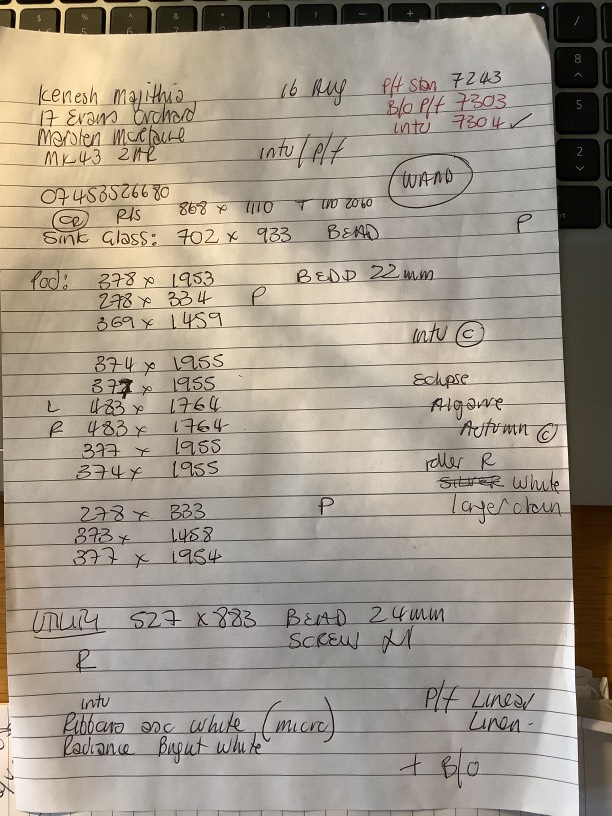 Kenesh Majithia
16 Aug
P/f Stan 7243
17 Evans Orchard
B/o P/f 7303
Marsten
intu 7304 ✓
MK43
intu / P/f
WAND
07453526680
RIS 868 x 1110
Sink Glass: 702 x 933 BEAD
P
Pod: 378 x 1953 BEDD 22mm
278 x 334 P
369 x 1459
intu C
374 x 1955
377 x 1955
Eclipse
L 483 x 1764
Algarve
R 483 x 1764
Autumn C
377 x 1955
374 x 1955
roller R
SILVER White
278 x 333 P
large chain
373 x 1458
377 x 1954
UTILITY 527 x 883 BEAD 24mm
SCREW
R
intu
P/f Linear
Ribbons asc white (micro)
Linen.
Radiance Bright White
+ B/o